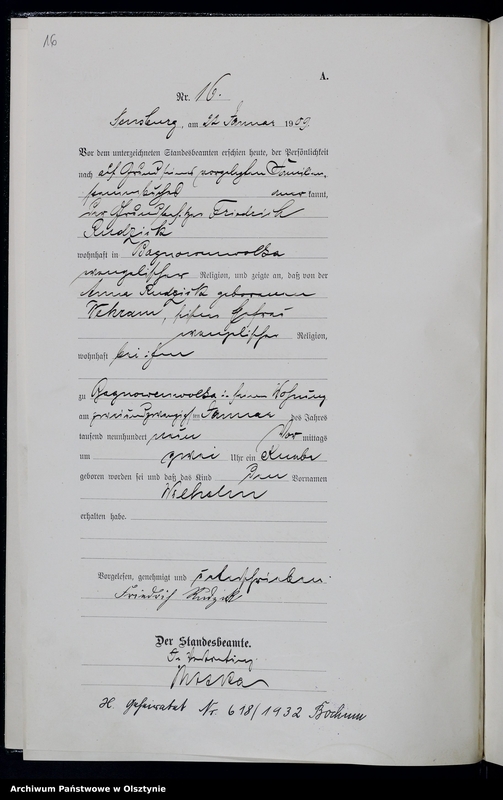 16
A.
Nr. 16.
Sensburg, am 22 Januar 1909.
Vor dem unterzeichneten Standesbeamten erschien heute, der Persönlichkeit
nach auf Grund seines vorgelegten Familien-
stammbuches anerkannt,
der Grundbesitzer Friedrich
Rudzick
wohnhaft in Bagnowenwolka
evangelischer Religion, und zeigte an, daß von der
Anna Rudzick geborenen
seiner Ehefrau
evangelischer Religion,
wohnhaft bei ihm
zu Bagnowenwolka in seiner Wohnung
am zweiundzwanzigsten Januar des Jahres
tausend neunhundert neun Vor mittags
um zwei Uhr ein Knabe
geboren worden sei und daß das Kind den Vornamen
Wilhelm
erhalten habe.
Vorgelesen, genehmigt und unterschrieben.
Friedrich Rudzick
Der Standesbeamte.
In Vertretung
H. Geheiratet Nr. 618/1932 Bochum
Archiwum Państwowe w Olsztynie